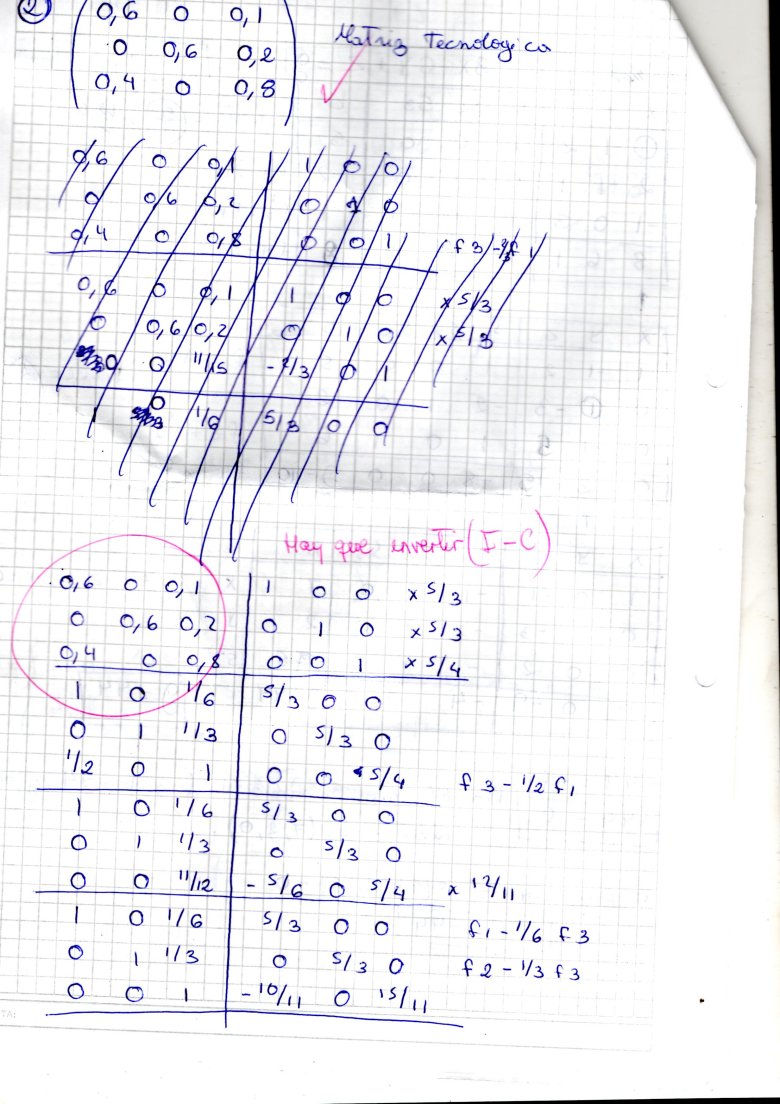 2) 0,6 0 0,1
0 0,6 0,2 Matriz Tecnologica
0,4 0 0,8
0,6 0 0,1 1 0 0
0 0,6 0,2 0 1 0
0,4 0 0,8 0 0 1 f3 - 2/3 f1
0,6 0 0,1 1 0 0 x 5/3
0 0,6 0,2 0 1 0 x 5/3
0 0 11/15 -2/3 0 1
1 0 1/6 5/3 0 0
Hay que invertir (I-C)
0,6 0 0,1 1 0 0 x 5/3
0 0,6 0,2 0 1 0 x 5/3
0,4 0 0,8 0 0 1 x 5/4
1 0 1/6 5/3 0 0
0 1 1/3 0 5/3 0
1/2 0 1 0 0 5/4 f3 - 1/2 f1
1 0 1/6 5/3 0 0
0 1 1/3 0 5/3 0
0 0 11/12 -5/6 0 5/4 x 12/11
1 0 1/6 5/3 0 0 f1 - 1/6 f3
0 1 1/3 0 5/3 0 f2 - 1/3 f3
0 0 1 -10/11 0 15/11